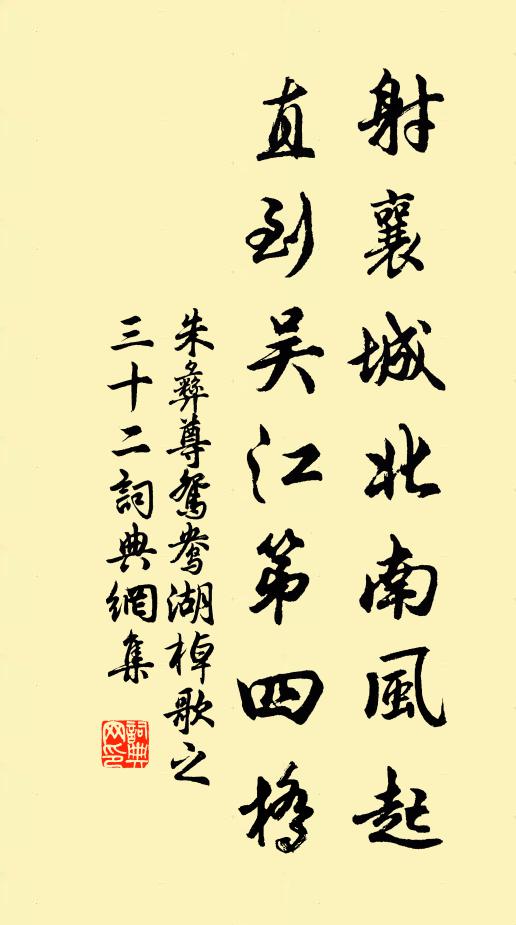 射襄城北南風起
直到吴江第四橋
朱彝尊鴛鴦湖棹歌之
三十二詞典網集
詞典
网印